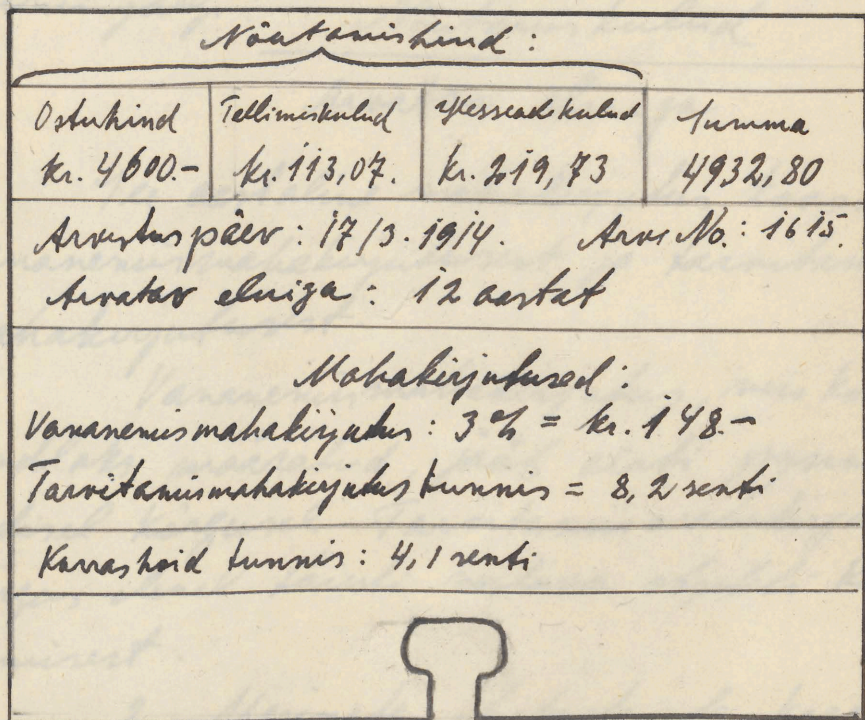 Nõutamishind:
Ostuhind Tellimiskulud Ülesseadekulud Summa
kr. 4600.- kr. 113,07. kr. 219,73 4932,80
Arvestuspäev: 17/3.1914. Arve No.: 1615.
Arvatav eluiga: 12 aastat
Mahakirjutused:
Vananemismahakirjutus: 3% = kr. 148.-
Tarvitamismahakirjutus tunnis = 8,2 senti
Korrashoid tunnis: 4,1 senti